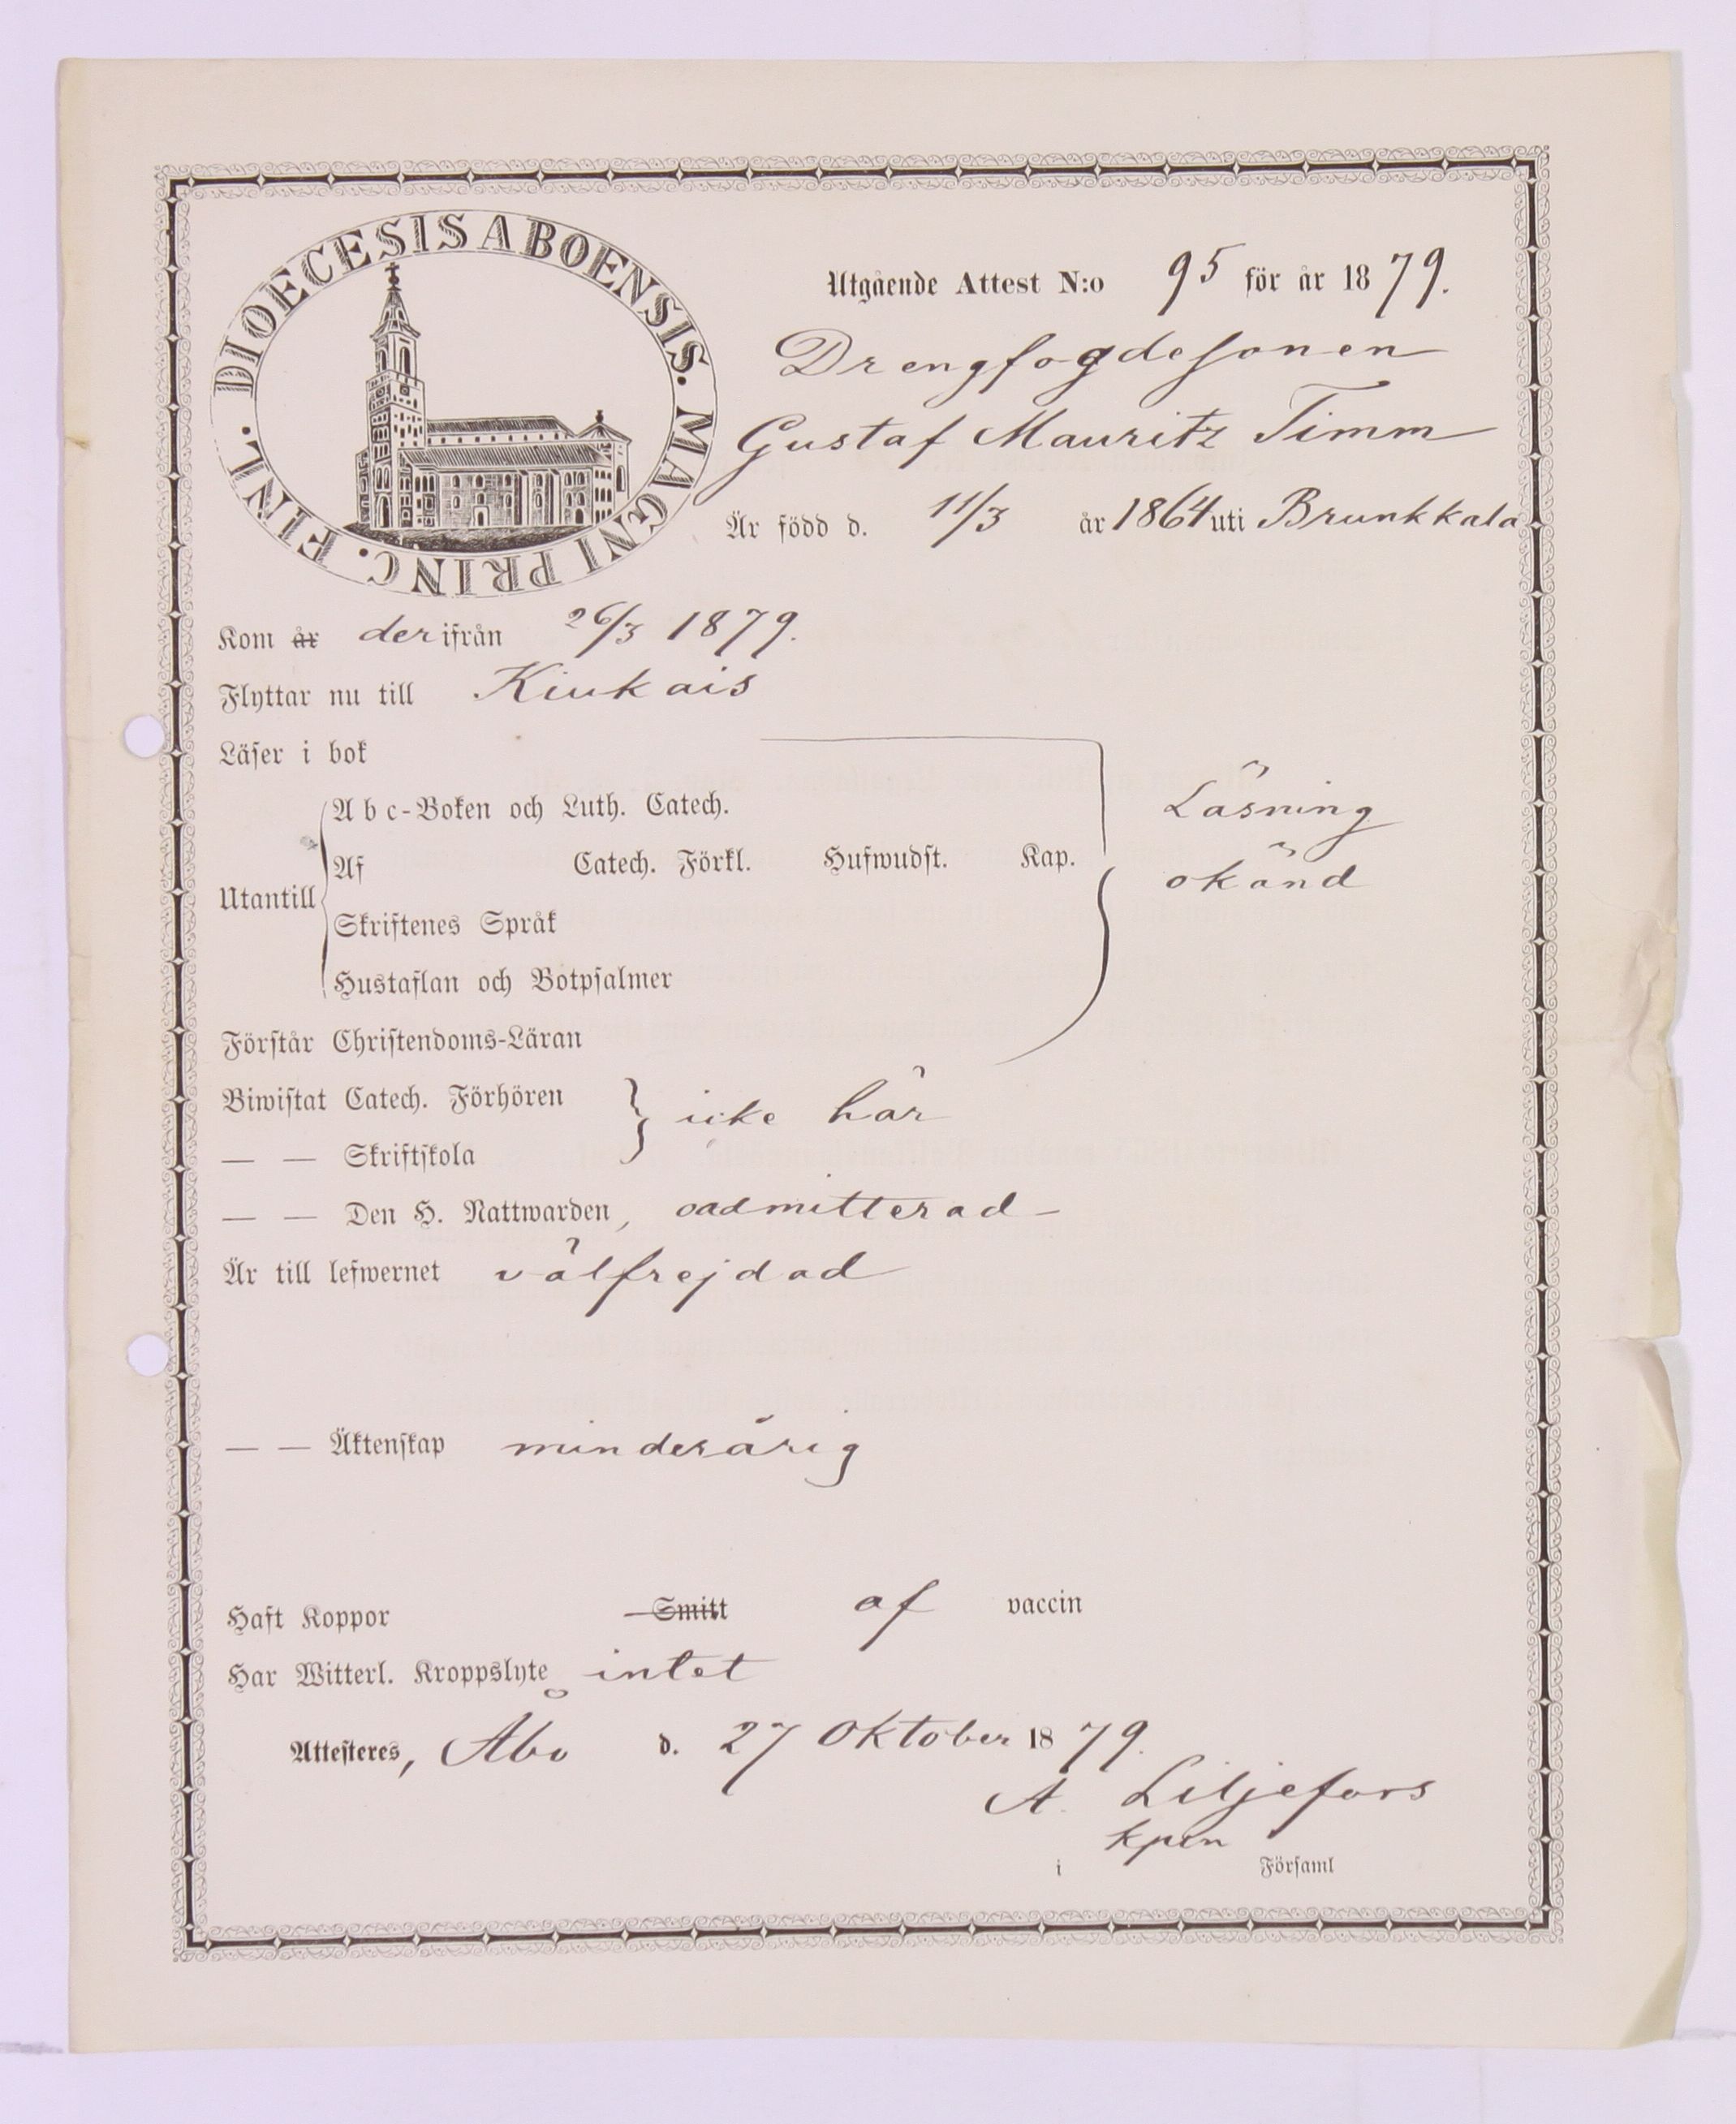 DIOECESIS ABOENSIS. MAGNI PRINC. FINL.
Utgående Attest N:o 95 för år 1879.
Drengfogdesonen
Gustaf Mauritz Timm
Är född d. 11/3 år 1864 uti Brunkkala
Kom år derifrån 26/3 1879.
Flyttar nu till Kiukais
Läser i bok
Abc-Boken och Luth. Catech.
Läsning
Af Catech. Förkl. Hufwudst. Kap.
okänd
Utantill
Skriftenes Språk
Hustaflan och Botpsalmer
Förstår Christendoms-Läran
Biwistat Catech. Förhören
icke här
— — Skriftskola
— — Den H. Nattwarden, oadmitterad
Är till lefwernet välfrejdad
— — Äktenskap minderårig
Haft Koppor Smitt af vaccin
Har Witterl. Kroppslyte intet
Attesteres, Åbo d. 27 Oktober 1879.
A. Liljefors
kpln
i Församl